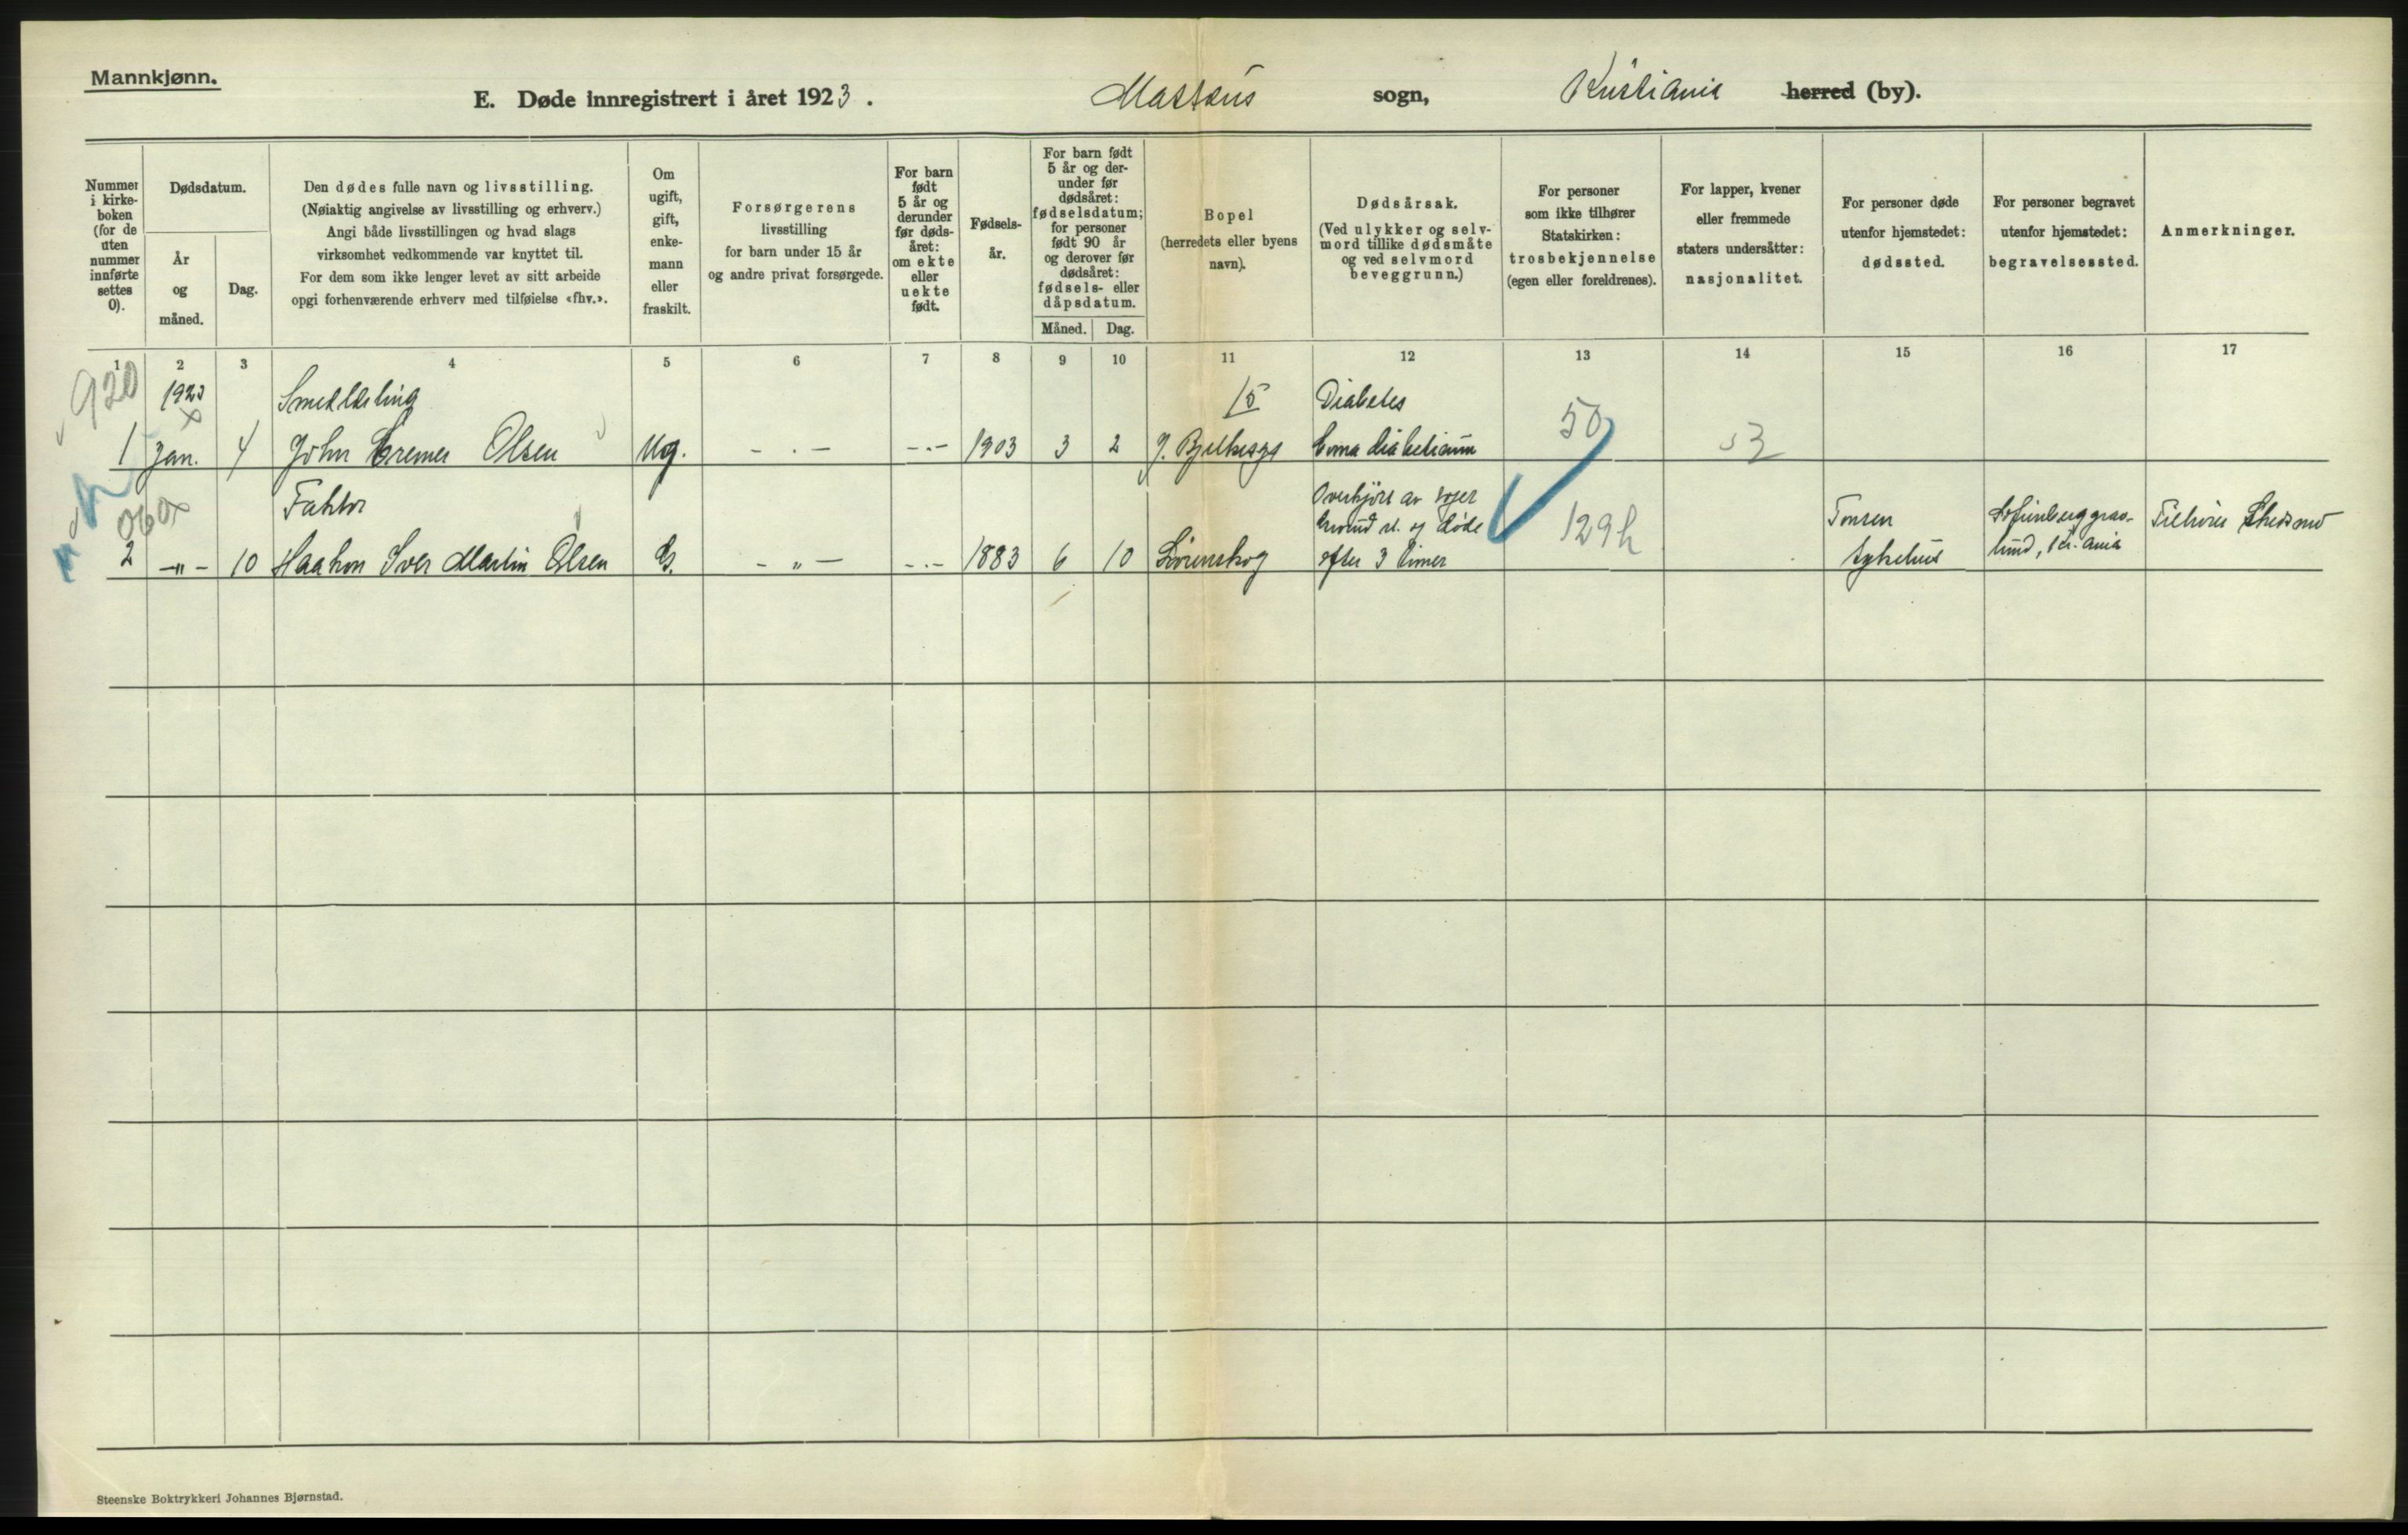 Mannkjønn.
E. Døde innregistrert i året 1923. Mattæus sogn, Kristiania herred (by).
Nummer i kirkeboken (for de uten nummer innførte settes 0).
Dødsdatum.
År og måned.
Dag.
Den dødes fulle navn og livsstilling.
(Nøiaktig angivelse av livsstilling og erhverv.)
Angi både livsstillingen og hvad slags
virksomhet vedkommende var knyttet til.
For dem som ikke lenger levet av sitt arbeide
opgi forhenværende erhverv med tilføielse «fhv.».
Om ugift, gift, enkemann eller fraskilt.
Forsørgerens
livsstilling
for barn under 15 år
og andre privat forsørgede.
For barn født 5 år og derunder før dødsåret: om ekte eller uekte født.
Fødselsår.
For barn født 5 år og derunder før dødsåret: fødselsdatum; for personer født 90 år og derover før dødsåret: fødsels- eller dåpsdatum.
Måned. Dag.
Bopel
(herredets eller byens
navn).
Dødsårsak.
(Ved ulykker og selvmord tillike dødsmåte
og ved selvmord
beveggrunn.)
For personer
som ikke tilhører
Statskirken:
trosbekjennelse
(egen eller foreldrenes).
For lapper, kvener
eller fremmede
staters undersåtter:
nasjonalitet.
For personer døde
utenfor hjemstedet:
dødssted.
For personer begravet
utenfor hjemstedet:
begravelsessted.
Anmerkninger.
1 2 3 4 5 6 7 8 9 10 11 12 13 14 15 16 17
920 1923 x Smedlærling 15 Diabetes 50
1 Jan. 4 John Cremer Olsen Ug. - . - - . - 1903 3 2 J. Bjelkesgt Coma diabeticum
060x Faktor Overkjört av
2 - " - 10 Haakon Iver Martin Olsen G. - " - - . - 1883 6 10 Lörenskog efter 3 timer 129h
og döde
Tonsen
sykehus
Sofienberg gravlund, Kr.ania
Tilhörer Skedsmo
Steenske Boktrykkeri Johannes Bjørnstad.